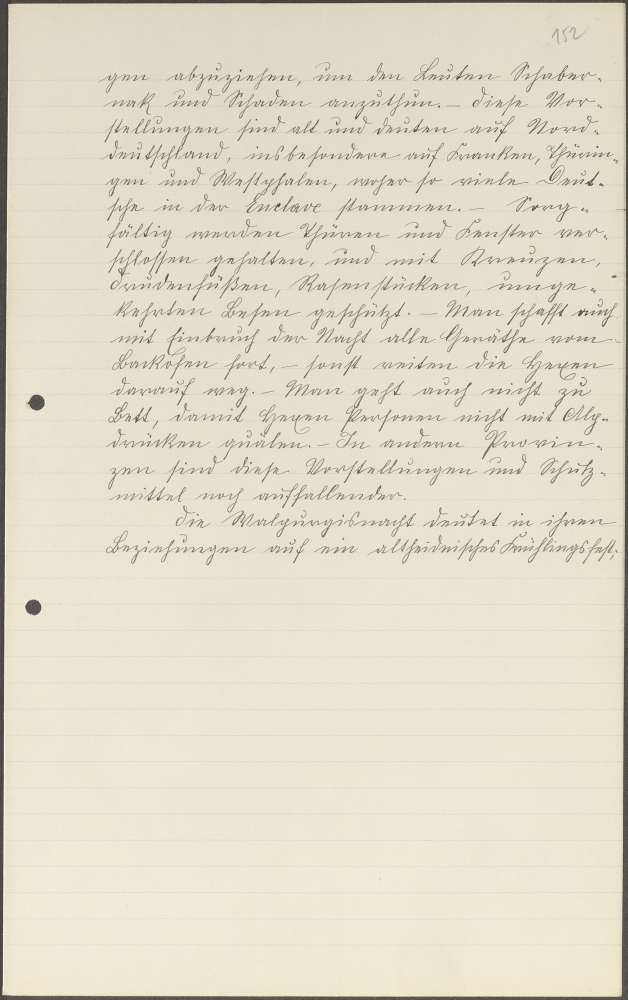 152
gen abzuziehen, um den Leuten Schaber-
nak und Schaden anzuthun. – Diese Vor-
stellungen sind alt und deuten auf Nord-
deutschland, insbesondere auf Franken, Thürin-
gen und Westphalen, woher so viele Deut-
sche in der Enclave stammen. – Sorg-
fältig werden Thüren und Fenster ver-
schlossen gehalten, und mit Kreuzen,
Trudenfüßen, Rasenstücken, umge-
kehrten Besen geschützt. – Man schafft auch
mit Einbruch der Nacht alle Geräthe vom
Backofen fort, – sonst reiten die Hexen
darauf weg. – Man geht auch nicht zu
Bett, damit Hexen Personen nicht mit Alp-
drücken quälen. – In andern Provin-
zen sind diese Vorstellungen und Schutz-
mittel noch auffallender.
Die Walpurgisnacht deutet in ihren
Beziehungen auf ein altheidnisches Frühlingsfest,